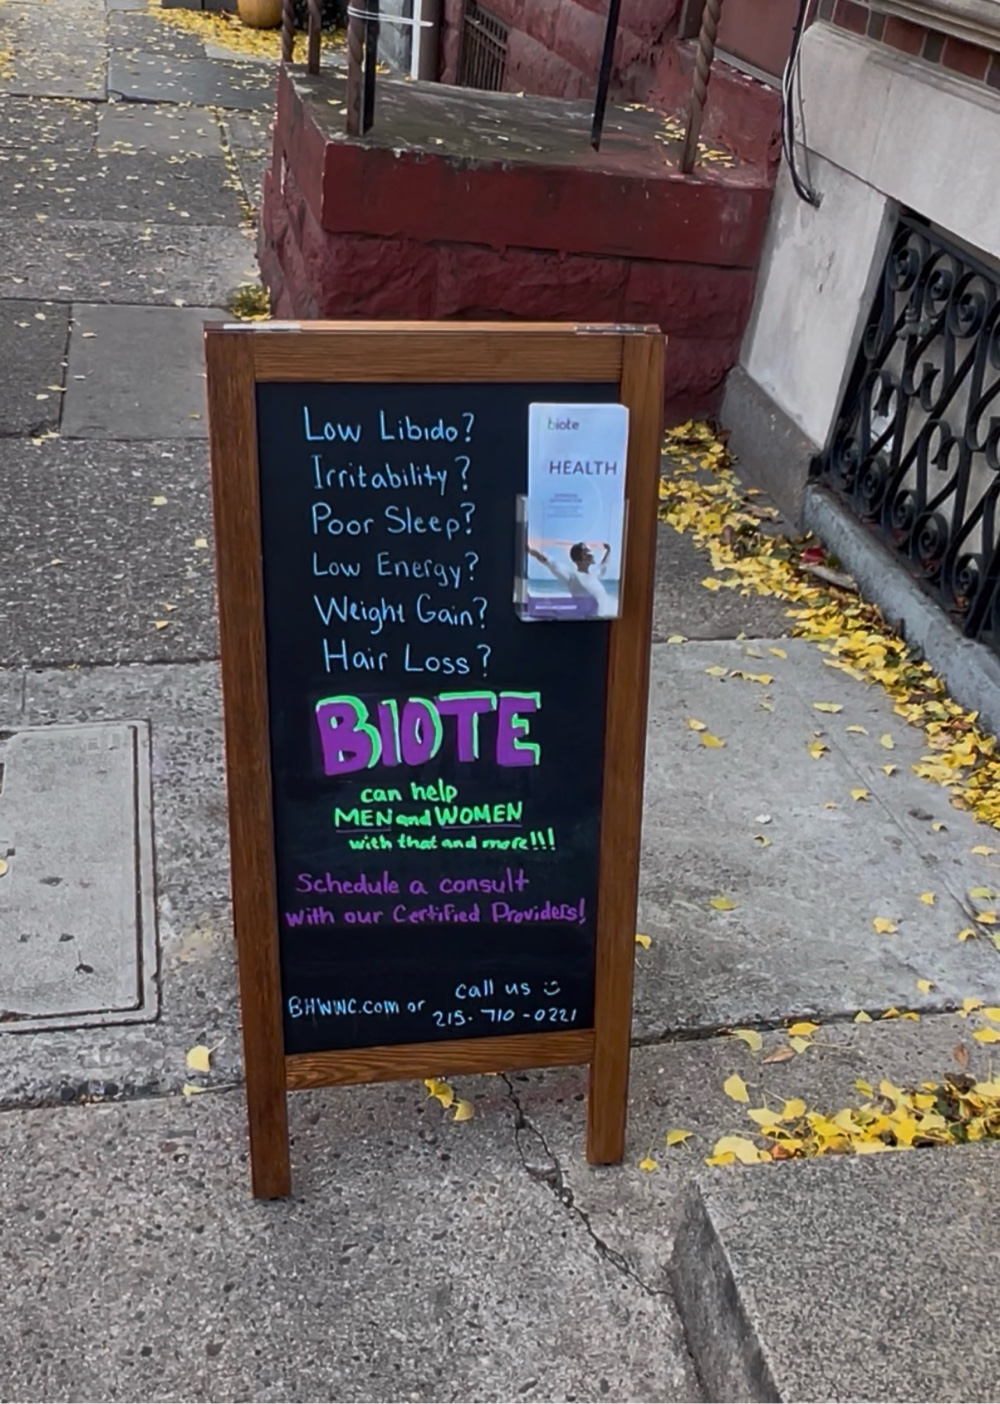 Low Libido?
Irritability?
Poor Sleep?
Low Energy?
Weight Gain?
Hair Loss?
BIOTE
can help
MEN and WOMEN
with that and more!!!
Schedule a consult
with our Certified Providers!
BHWWC.com or
call us
215-710-0221
biote
HEALTH